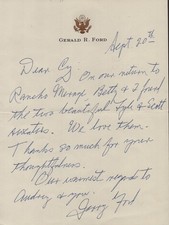 GERALD R. FORD
Sept 20th
Dear Cy
On our return to
Rancho Mirage Betty & I found
the two beautiful Lyle & Scott
sweaters. We love them.
Thanks so much for your
thoughtfulness.
Our warmest regards to
Audrey & you.
Jerry Ford